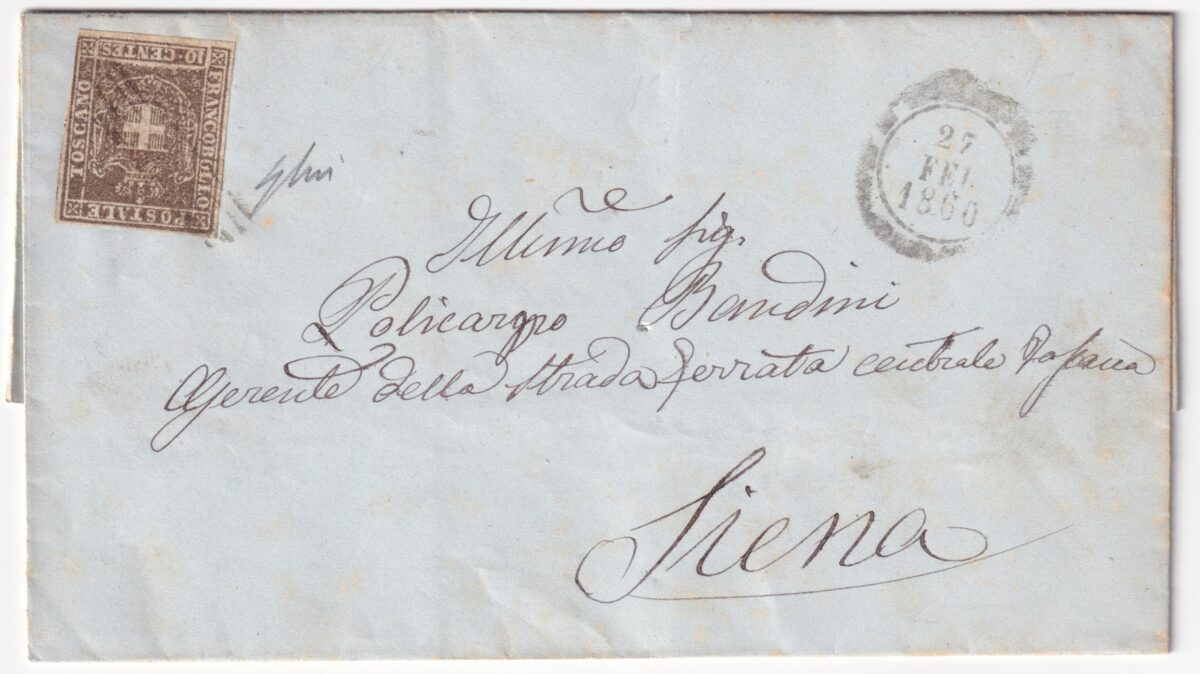 10 · CENTES
FRANCOBOLLO
POSTALE
TOSCANO
27
FEB
1860
Illustrmo sig.
Policarpo Bandini
Gerente della Strada Ferrata centrale Toscana
Siena